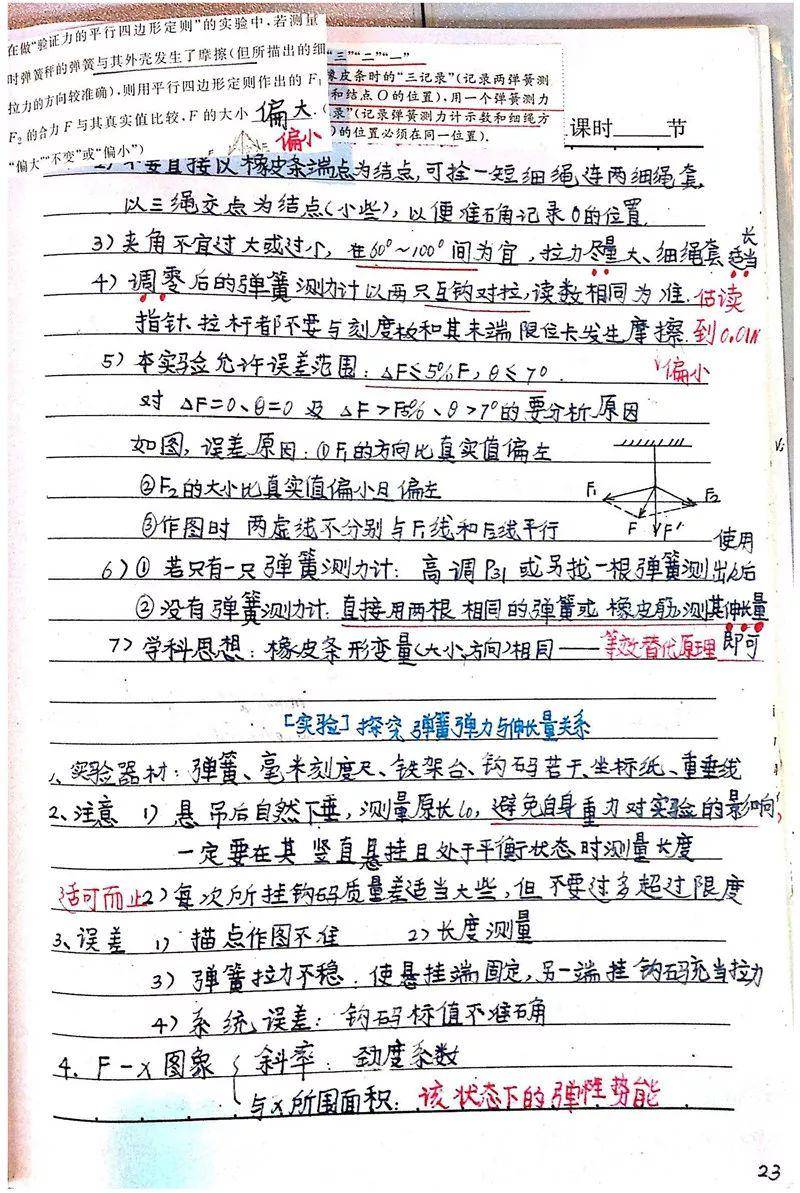 在做“验证力的平行四边形定则”的实验中,若测量
时弹簧秤的弹簧与其外壳发生了摩擦(但所描出的细
拉力的方向较准确),则用平行四边形定则作出的 F₁
F₂的合力 F 与其真实值比较,F 的大小 偏大.(
偏小
“偏大”“不变”或“偏小”)
“三”“二”“一”
橡皮条时的“三记录”(记录两弹簧测
和结点 O 的位置),用一个弹簧测力
录”(记录弹簧测力计示数和细绳方
)的位置必须在同一位置).
课时 节
不要直接以橡皮条端点为结点,可拴一短细绳连两细绳套,
以三绳交点为结点(小些),以便准确记录O的位置.
3)夹角不宜过大或过小,在60°~100°间为宜,拉力尽量大、细绳套适当长
4)调零后的弹簧测力计以两只互钩对拉,读数相同为准.估读
指针、拉杆都不要与刻度板和其末端限位卡发生摩擦.到0.01N
偏小
5)本实验允许误差范围:△F≤5%F,θ≤7°.
对 △F=0、θ=0 及 △F>F5%、θ>7°的要分析原因
如图,误差原因:①F₁的方向比真实值偏左
②F₂的大小比真实值偏小且偏左
③作图时 两虚线不分别与F₁线和F₂线平行
F₁ F₂ F F′
6)①若只有一只弹簧测力计:
或另找一根弹簧测出k后使用
②没有弹簧测力计:直接用两根相同的弹簧或橡皮筋,测其伸长量
即可
7)学科思想:橡皮条形变量(大小、方向)相同——等效替代原理
[实验]探究弹簧弹力与伸长量关系
1、实验器材:弹簧、毫米刻度尺、铁架台、钩码若干、坐标纸、重垂线
2、注意 1)悬吊后自然下垂,测量原长l₀,避免自身重力对实验的影响,
一定要在其竖直悬挂且处于平衡状态时测量长度
适可而止2)每次所挂钩码质量差适当大些,但不要过多超过限度
3、误差 1)描点作图不准 2)长度测量
3)弹簧拉力不稳:使悬挂端固定,另一端挂钩码充当拉力
4)系统误差:钩码标值不准确
4、F-x图象{斜率:劲度系数
与x所围面积:该状态下的弹性势能
23